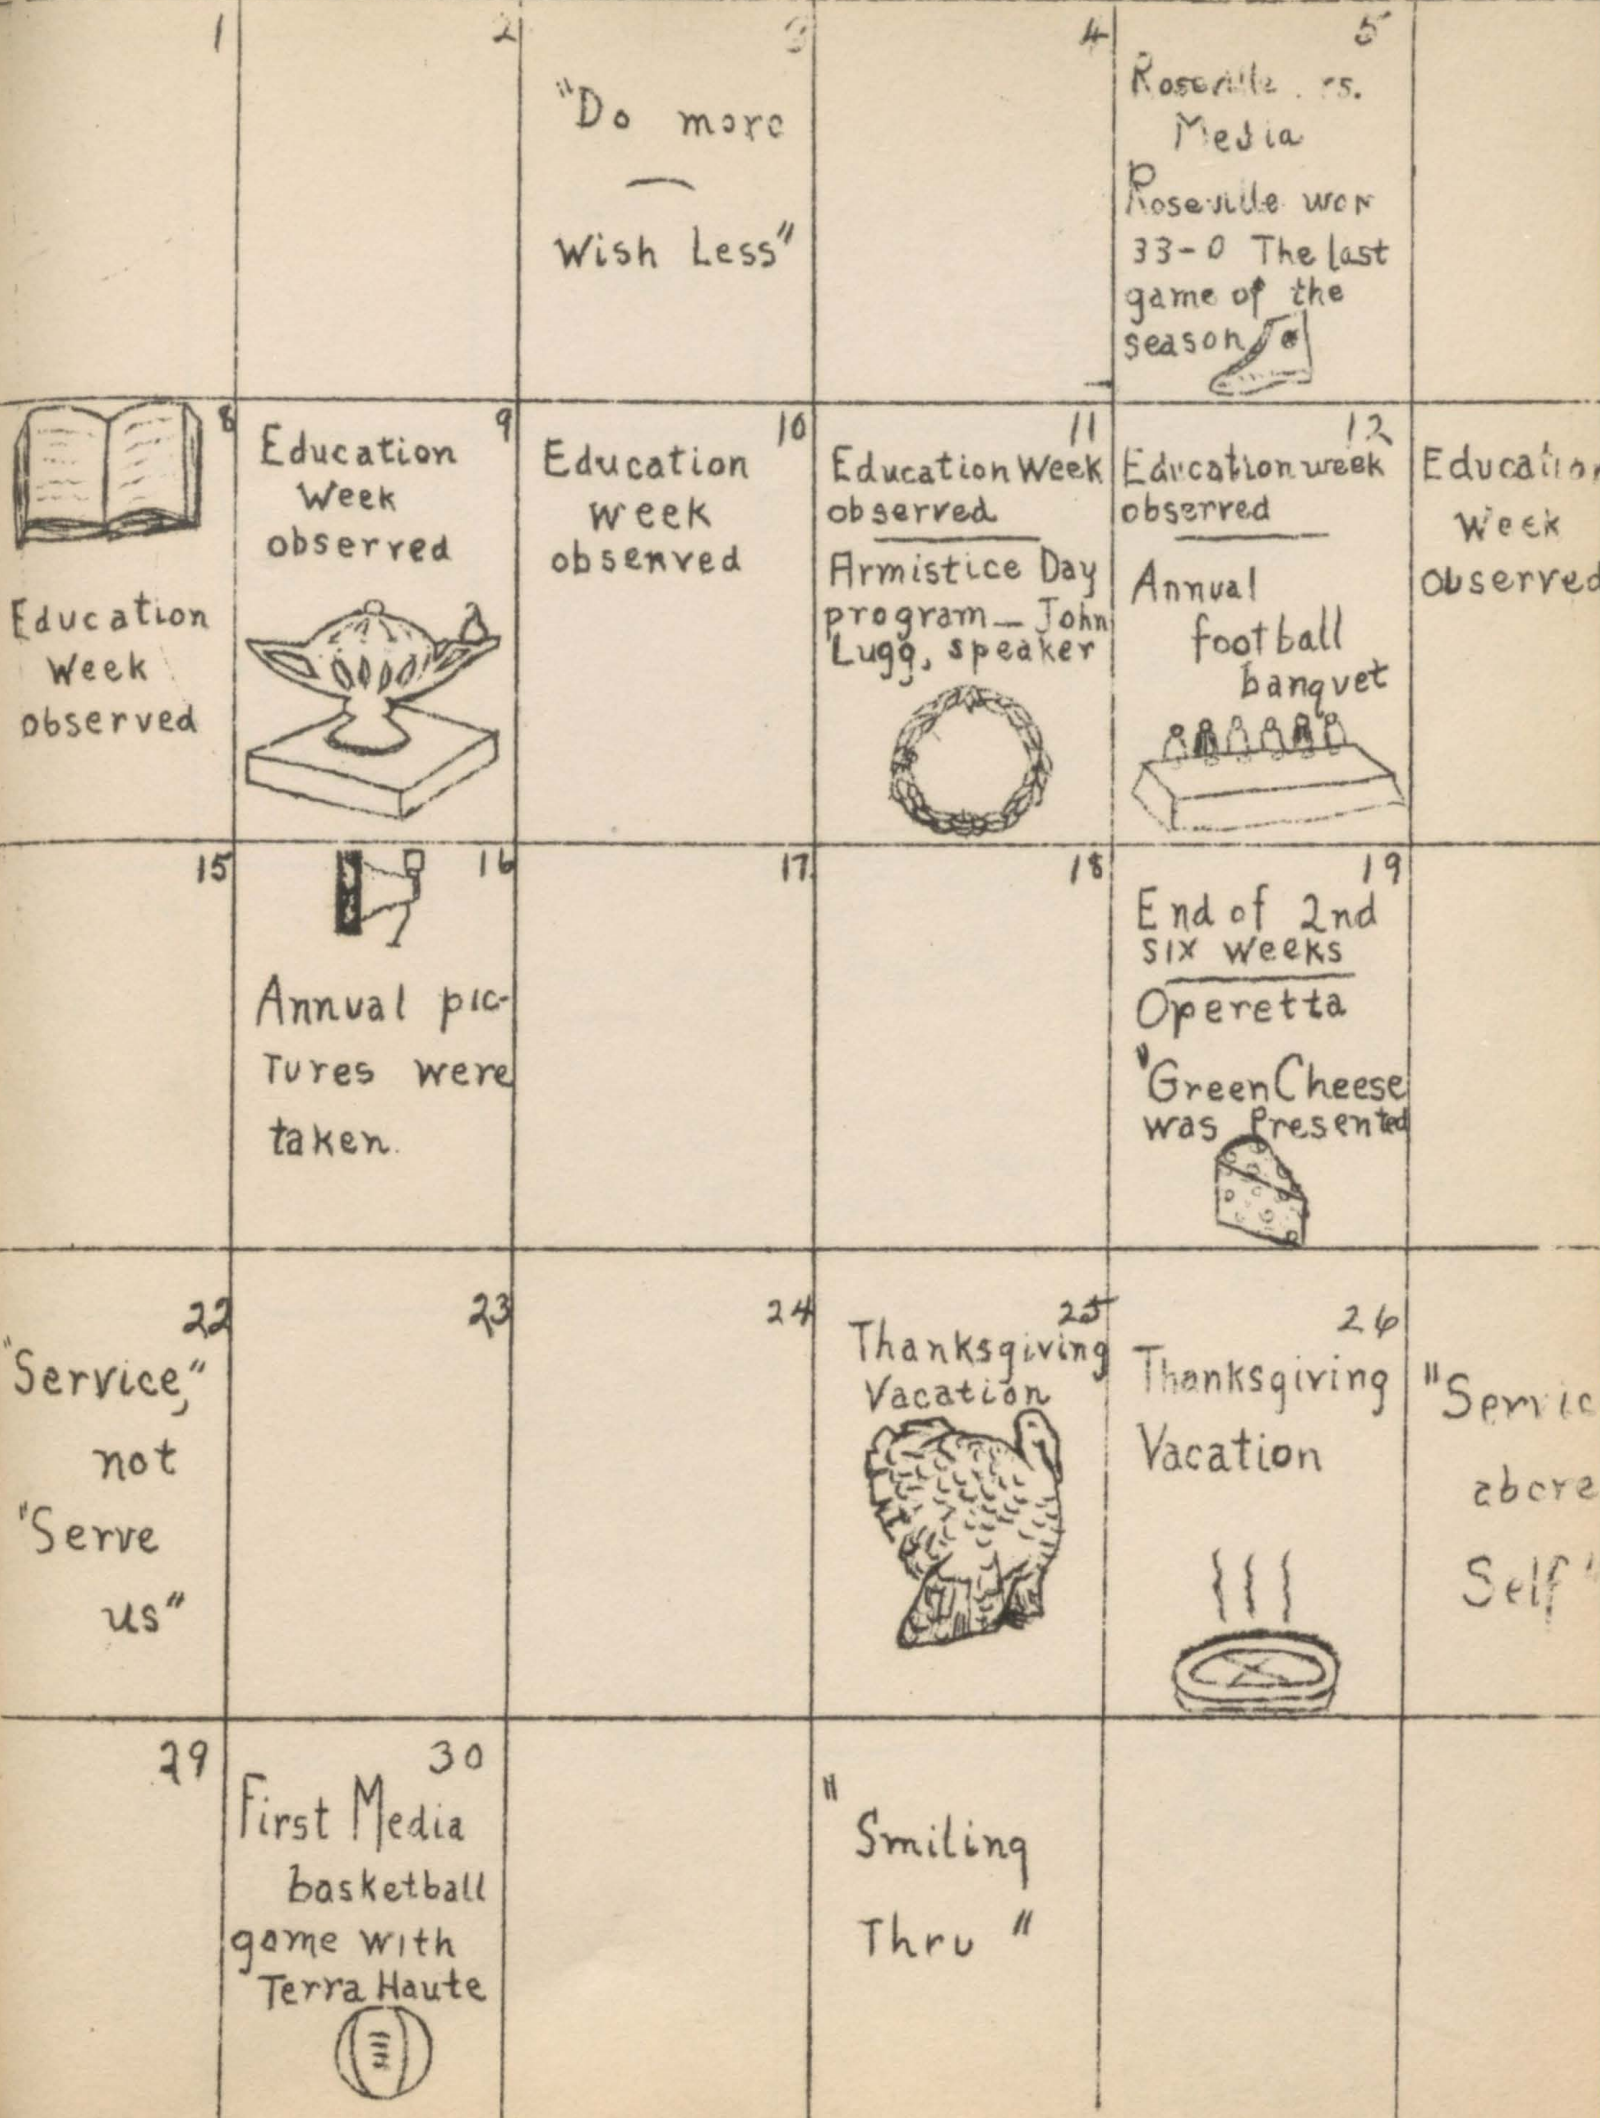 1
2
3
"Do more
—
Wish Less"
4
5
Roseville vs.
Media
Roseville won
33-0 The last
game of the
season
8
Education
Week
observed
9
Education
Week
observed
10
Education
week
observed
11
Education Week
observed
Armistice Day
program — John
Lugg, speaker
12
Education week
observed
Annual
football
banquet
Education
Week
Observed
15
16
Annual pic-
tures were
taken.
17
18
19
End of 2nd
six weeks
Operetta
"Green Cheese
was Presented
22
"Service,"
not
"Serve
us"
23
24
25
Thanksgiving
Vacation
26
Thanksgiving
Vacation
"Servic
above
Self"
29
30
First Media
basketball
game with
Terra Haute
"
Smiling
Thru "